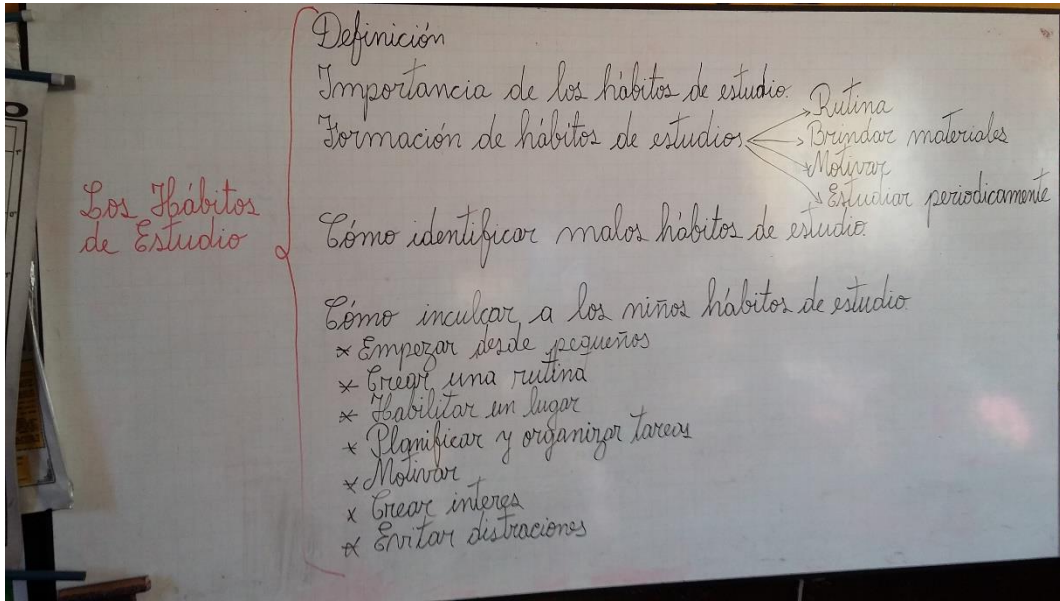 Los Hábitos
de Estudio
Definición
Importancia de los hábitos de estudio.
Formación de hábitos de estudios
Rutina
Brindar materiales
Motivar
Estudiar periodicamente
Cómo identificar malos hábitos de estudio.
Cómo inculcar a los niños hábitos de estudio.
* Empezar desde pequeños
* Crear una rutina
* Habilitar un lugar
* Planificar y organizar tareas
* Motivar
x Crear interes
* Evitar distraciones